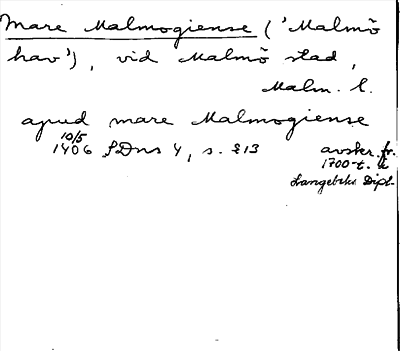 Mare Malmogiense ('Malmö
hav'), vid Malmö stad,
Malm. l.
apud mare Malmogiense
10/5
1406 SDns 4, s. 813 avskr. fr.
1700-t. i
Langebeks Dipl.